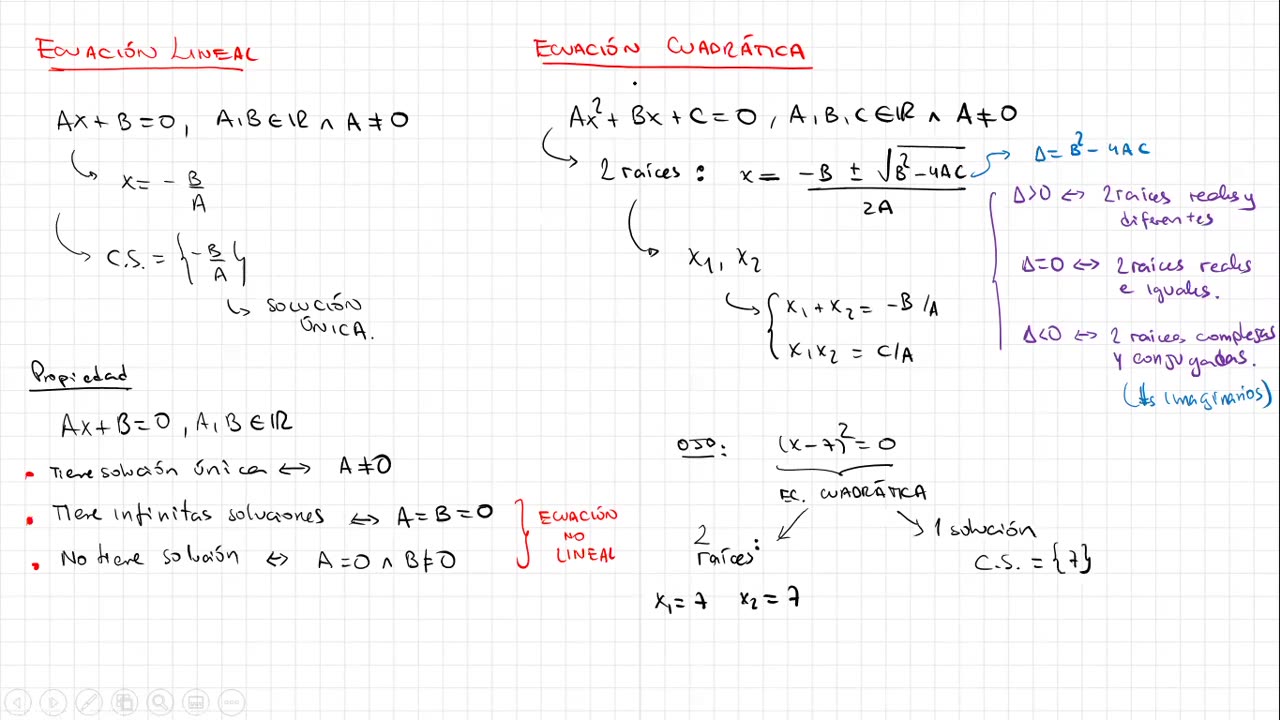 ECUACIÓN LINEAL
Ax + B = 0, A,B ∈ ℝ ∧ A ≠ 0
x = - B/A
C.S. = {-B/A}
SOLUCIÓN
ÚNICA.
Propiedad
Ax + B = 0, A,B ∈ ℝ
• Tiene solución única ⟷ A ≠ 0
• Tiene infinitas soluciones ⟷ A = B = 0
• No tiene solución ⟷ A = 0 ∧ B ≠ 0
ECUACIÓN
NO
LINEAL
ECUACIÓN CUADRÁTICA
Ax² + Bx + C = 0, A,B,C ∈ ℝ ∧ A ≠ 0
2 raíces: x = (-B ± √(B² - 4AC)) / 2A
Δ = B² - 4AC
Δ>0 ⟷ 2 raíces reales y
diferentes
Δ=0 ⟷ 2 raíces reales
e iguales.
Δ<0 ⟷ 2 raíces complejas
y conjugadas.
(#s imaginarios)
x₁, x₂
x₁ + x₂ = -B/A
x₁x₂ = C/A
OJO: (x - 7)² = 0
EC. CUADRÁTICA
2
raíces:
x₁ = 7 x₂ = 7
1 solución
C.S. = {7}